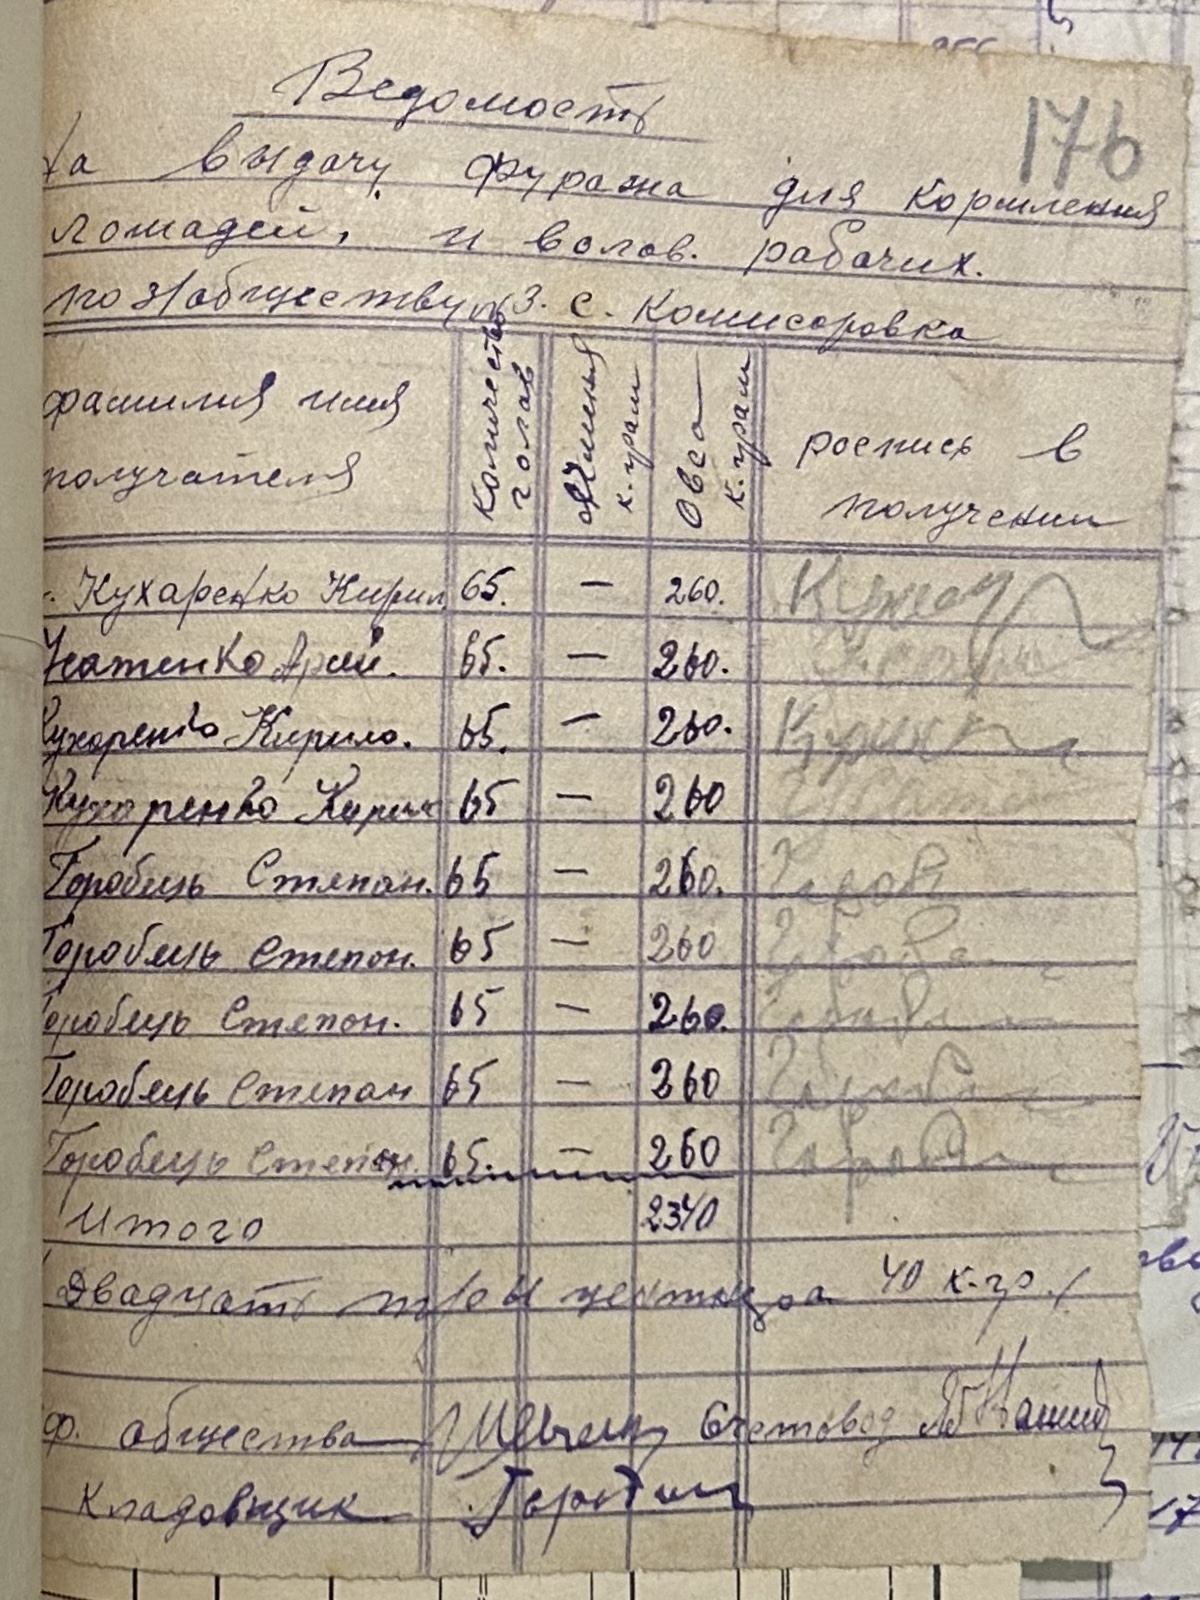 Ведомость
176
на выдачу фуража для кормления
лошадей, и волов. рабочих.
по з/обществу №3. с. Комисоровка
фамилия имя
получателя
Количество
голов
Ячменя
к.грам
Овса
к.грам
роспись в
получении
Кухаренко Кирил 65. — 260.
65. — 260.
Кухоренко Кирило. 65. — 260.
Кухоренко Кирил 65 — 260
Горобець Степан. 65 — 260.
Горобець Степон. 65 — 260
Горобець Степон. 65 — 260.
Горобець Степан 65 — 260
Горобець Степан. 65. — 260
Итого 2340
Двадцать три центнера 40 к-гр.
общества Счетовод
Кладовщик